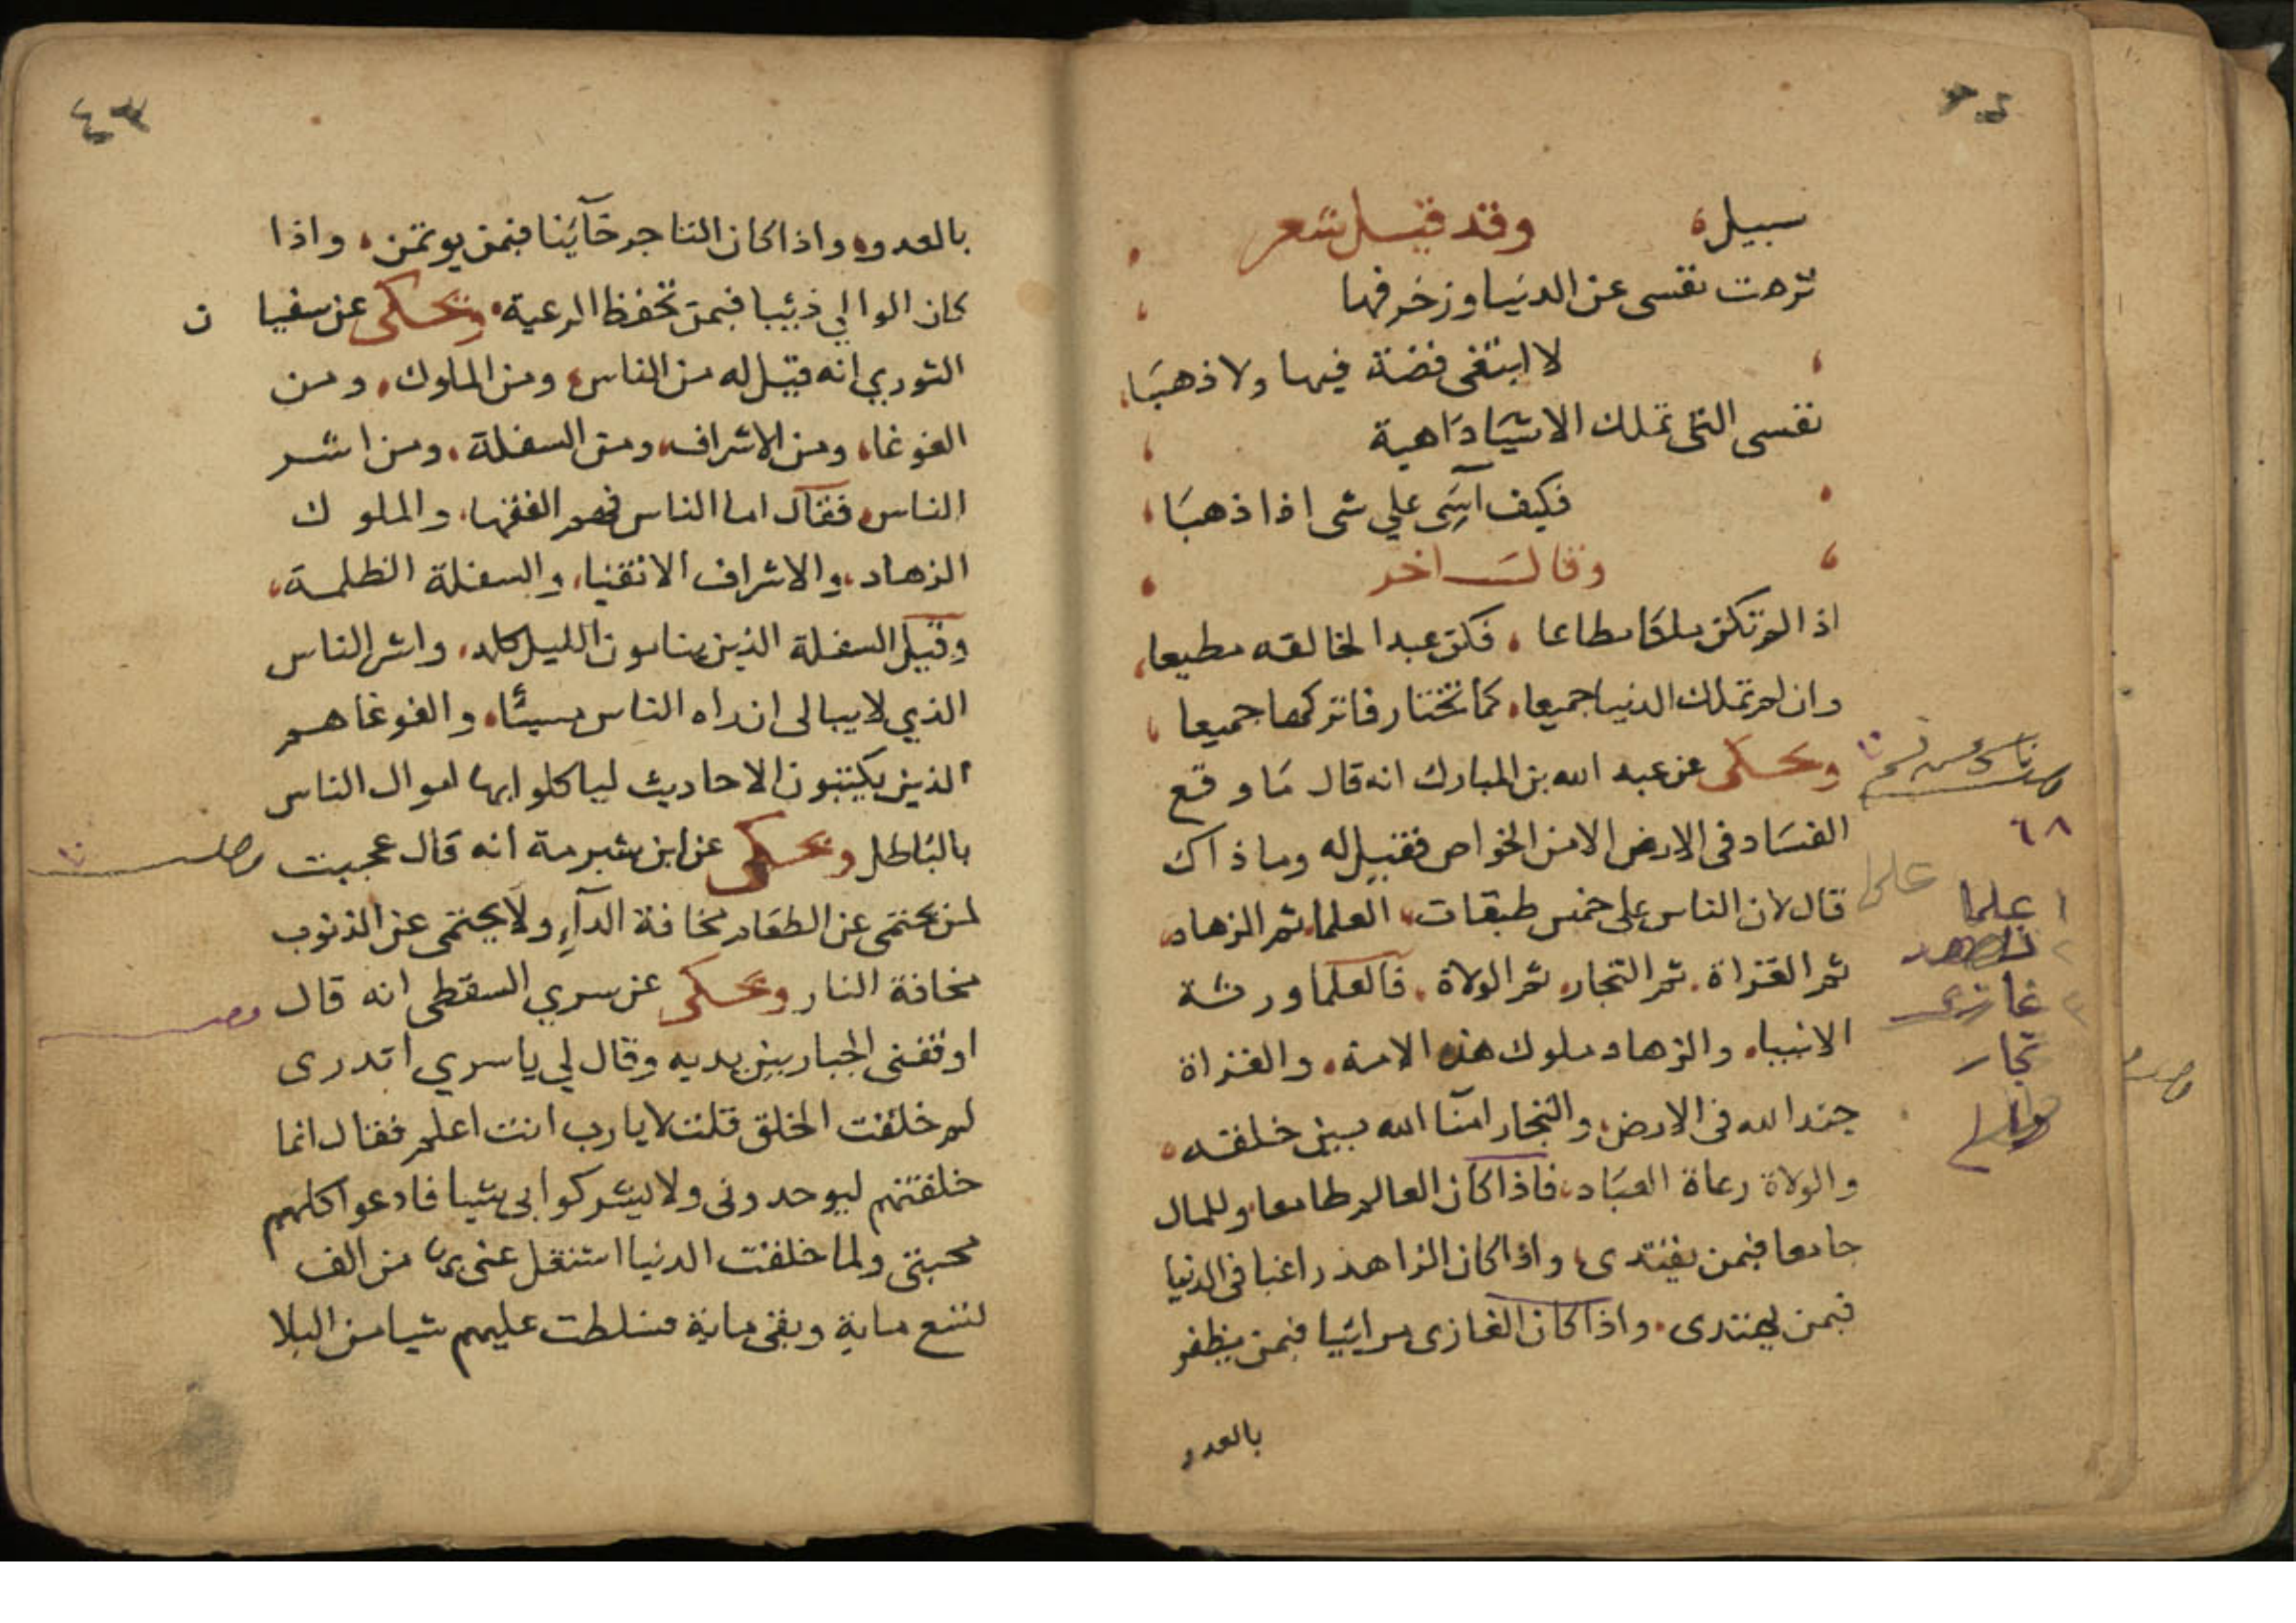 سبيله وقد قيل شعر
نزهت نفسى عن الدنيا وزخرفها
لا ابتغى فضة فيها ولا ذهبا
نفسى التى تملك الاشيا داهية
فكيف آسى على شى اذا ذهبا
وقال اخر
اذا لم تكن ملكا مطاعا، فكن عبدا لخالقه مطيعا،
وان لم تملك الدنيا جميعا، كما تختار فاتركها جميعا
ويحكى عن عبد الله بن المبارك انه قال ما وقع
الفساد فى الارض الا من الخواص فقيل له وما ذاك
قال لان الناس على خمس طبقات، العلما، ثم الزهاد،
ثم الغزاة، ثم التجار، ثم الولاة، فالعلما ورثة
الانبيا، والزهاد ملوك هذه الامة، والغزاة
جند الله فى الارض، والتجار امنا الله بين خلقه،
والولاة رعاة العباد، فاذا كان العالم طامعا، وللمال
جامعا فبمن يقتدى، واذا كان الزاهد راغبا فى الدنيا
فبمن يهتدى، واذا كان الغازى مرائيا فبمن يظفر
بالعدو
٦٨
علما
١ علما
٣ غازى
تجار
٤٣
بالعدو، واذا كان التاجر خآئنا فبمن يوتمن، واذا
كان الوالي ذئيبا فبمن تحفظ الرعية، ويحكى عن سفيان
الثوري انه قيل له من الناس، ومن الملوك، ومن
الغوغا، ومن الاشراف، ومن السفلة، ومن اشر
الناس، فقال اما الناس فهم الفقها، والملوك
الزهاد، والاشراف الاتقيا، والسفلة الظلمة،
وقيل السفلة الذين ينامون الليل كله، واشر الناس
الذي لا يبالى ان راه الناس مسيئا، والغوغا هم
الذين يكتبون الاحاديث لياكلوا بها اموال الناس
بالباطل ويحكى عن ابن شبرمة انه قال عجبت
لمن يحتمى عن الطعام مخافة الدآء ولا يحتمى عن الذنوب
مخافة النار ويحكى عن سري السقطى انه قال
اوقفنى الجبار بين يديه وقال لي يا سري اتدرى
لم خلقت الخلق قلت لا يا رب انت اعلم فقال انما
خلقتهم ليوحدونى ولا يشركوا بى شيا فادعوا كلهم
محبتى ولما خلقت الدنيا اشتغل عنى بها من الف
تسع ماية وبقى ماية فسلطت عليهم شيا من البلا